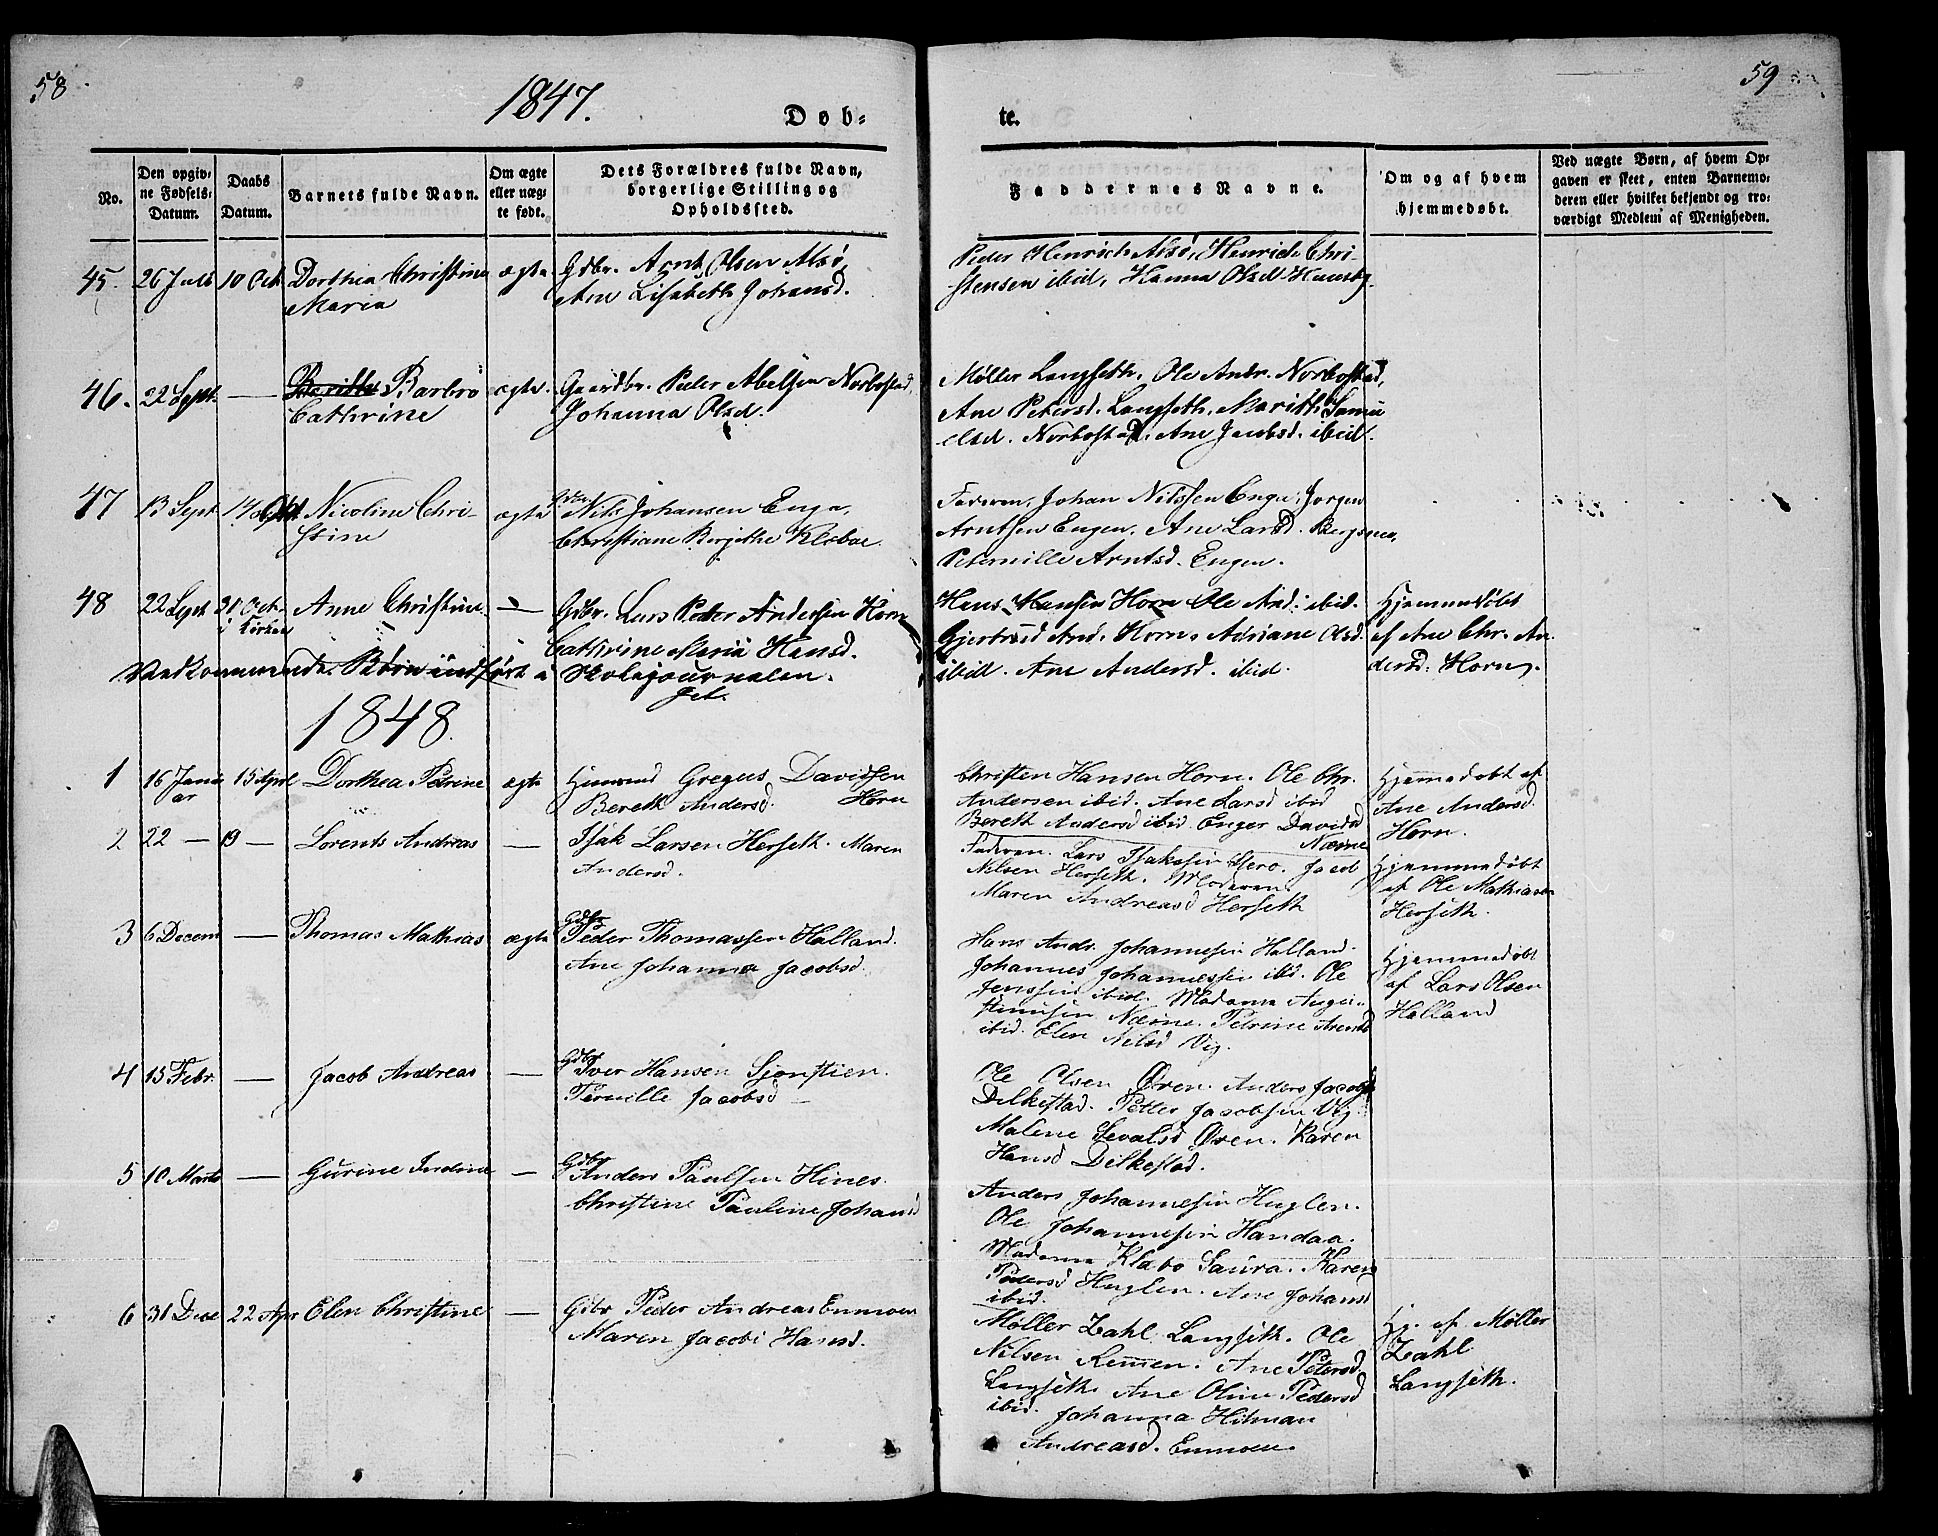 58
1847.
Døb-
No.
Den opgiv-
ne Fødsels-
Datum.
Daabs
Datum.
Barnets fulde Navn.
Om ægte
eller uæg-
te født.
Dets Forældres fulde Navn,
borgerlige Stilling og
Opholdssted.
45. 26 Juli 10 Oct Dorthea Christine ægte Gdbr. Arnt Olsen Alsø,
Maria Ane Lisabeth Johansd.
46. 22 Sept. — Barbro ægte. Gaardbr. Peder Abelsen Norbostad,
Cathrine Johanna Olsd.
47 13 Sept 14 Oct Nicoline Chri- ægte Gdbr. Nils Johansen Enga,
stine Christiane Birjithe Klæboe.
48 22 Sept 21 Oct. Anne Christine — Gdbr. Lars Peter Andersen Horn
i Kirken Cathrine Maria Hansd.
Vedkommende Børn indført i Skolejournalen.
1848.
1 16 Janu 15 Apl Dorthea Petrine ægte Huusmd Gregus Davidsen
ar Bereth Andersd. Horn
2 22 — 19 — Lorents Andreas — Isak Larsen Herseth. Maren
Andersd.
3 6 Decem — Thomas Mathias ægte Gdbr Peder Thomassen Halland.
Ane Johanna Jacobsd.
4 15 Febr. — Jacob Andreas — Gdbr Iver Hansen Sjonstien.
Pernille Jacobsd —
5 10 Marts — Gurine Indine — Gdbr Anders Paulsen Hines.
Christine Pauline Johansd
6 31 Dec 22 Apr Elen Christine — Gdbr Peder Andreas Enmoen
Maren Jacobi Hansd.
59
te.
Faddernes Navne.
Om og af hvem
hjemmedøbt.
Ved uægte Børn, af hvem Op-
gaven er skeet, enten Barnemo-
deren eller hvilket bekjendt og tro-
værdigt Medlem af Menigheden.
Peder Henrich Alsø, Henrich Chri-
stensen ibid, Hanna Olsd
Møller Langseth, Ole Andr. Norbostad,
Ane Petersd. Langseth, Marith Samu
elsd. Norbostad, Ane Jacobsd. ibid.
Faderen, Johan Nilssen Enga, Jørgen
Arntsen Engen, Ane Larsd. Bergsnes,
Pernille Arntsd. Engen.
Hans Hansen Horn Ole And. ibid. Hjemmedøbt
Gjertrud And. Horn, Adriane Olsd. af Ane Chr. An
ibid. Ane Andersd. ibid. dersd. Horn.
Christen Hansen Horn. Ole Chr. Hjemmedøbt af
Andersen ibid. Ane Larsd ibid Ane Andersd.
Bereth Andersd ibid. Enger Davidsd Horn.
Næsne
Faderen. Lars Isaksen Jacob Hjemmedøbt
Nilsen Herseth. Moderen. af Ole Mathiasen
Maren Andreasd Herseth Herseth.
Hans Andr. Johannesen Halland. Hjemmedøbt
Johannes Johannessen ibid. Ole af Lars Olsen
Jenssen ibid. Madame Halland
Næsne. Petrine
ibid. Elen Nilsd Vig.
Ole Olsen Øren. Anders Jacobs
Dilkestad. Petter Jacobsen Vig.
Malene Sevalsd Øren. Karen
Hansd Dilkestad.
Anders Johannesen Huglen.
Ole Johannesen Handaa.
Madame Klæbo Saura. Karen
Pedersd Huglen. Ane Johansd
ibid.
Møller Zahl Langseth. Ole Hj. af Møller
Nilsen Remen. Ane Petersd. Zahl
Langseth. Ane Oline Pedersd Langseth.
ibid. Johanna Hitman
Andreasd. Enmoen.